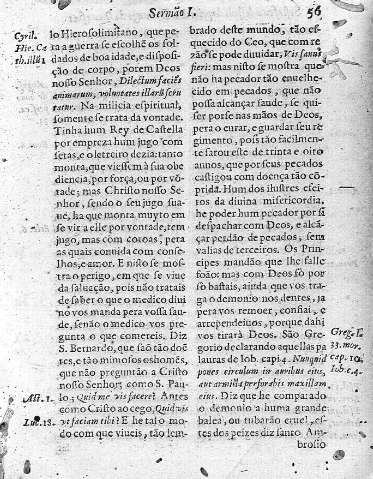 Sermão I. 56
Cyril.
Hie. Ca
th. illu
lo Hierosolimitano, que pe-
ra a guerra se escolhe os sol-
dados de boa idade, e disposi-
ção de corpo, porem Deos
nosso Senhor, Dilectum faciēs
animarum, voluntates illarū scru
tatur. Na milicia espiritual,
somente se trata da vontade.
Tinha hum Rey de Castella
por empreza hum jugo com
setas, e o letreiro dezia: tanto
monta, que viesse à sua obe
diencia, por força, ou por vō-
tade; mas Christo nosso Se-
nhor, sendo o seu jugo sua-
ue, ha que monta muyto em
se vir a elle por vontade, tem
jugo, mas com coroas, pera
as quais conuida com conse-
lhos, e amor. E nisto se mos-
tra o perigo, em que se viue
da saluação, pois não tratais
de saber o que o medico diui
no vos manda pera vossa sau-
de, senão o medico vos pre-
gunta o que quereis. Diz
S. Bernardo, que saõ taõ doē-
tes, e tão mimosos os homēs,
que não preguntão a Christo
nosso Senhor, como S. Pau-
Act. 1.
lo; Quid me vis facere? Antes
como Christo ao cego, Quid vis
Luc. 18.
vt faciam tibi? E he tal o mo-
do com que viueis, tão lem-
brado deste mundo, tão es-
quecido do Ceo, que com re
zão se pode duuidar, Vis sanus
fieri: mas nisto se mostra que
não ha pecador tão enuelhe-
cido em pecados, que não
possa alcançar saude, se qui-
ser por se nas mãos de Deos,
pera o curar, e guardar seu re
gimento, pois tão facilmen-
te sarou este de trinta e oito
annos, que por seus pecados
castigou com doença tão cō-
prida. Hum dos ilustres efei-
tos da diuina misericordia,
he poder hum pecador por si
despachar com Deos, e alcā-
çar perdão de pecados, sem
valias de terceiros. Os Prin-
cipes mandão que lhe falle
foão: mas com Deos só por
só bastais, ainda que vos tra-
ga o demonio nos dentes, ja
pera vos remoer, confiai, e
arrependeiuos, porque dahi
vos tirará Deos. São Gre-
Greg. l.
33. mor.
cap. 10.
Iob. c. 4.
gorio declarando aquellas pa
lauras de Iob. cap. 4. Nunquid
pones circulum in naribus eius,
aut armilla perforabis maxillam
eius. Diz que he comparado
o demonio a huma grande
balea, ou tubarão cruel, es-
tes dos peixes diz santo Am
brosio